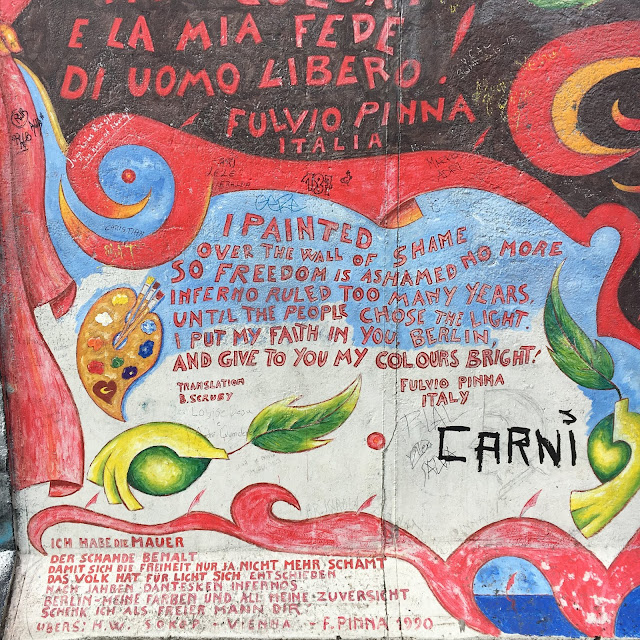 E LA MIA FEDE
DI UOMO LIBERO!
FULVIO PINNA
ITALIA
I PAINTED
OVER THE WALL OF SHAME
SO FREEDOM IS ASHAMED NO MORE
INFERNO RULED TOO MANY YEARS,
UNTIL THE PEOPLE CHOSE THE LIGHT.
I PUT MY FAITH IN YOU, BERLIN,
AND GIVE TO YOU MY COLOURS BRIGHT!
TRANSLATION
B. SCRUBY
FULVIO PINNA
ITALY
CARNÌ
ICH HABE DIE MAUER
DER SCHANDE BEMALT
DAMIT SICH DIE FREIHEIT NUR JA NICHT MEHR SCHAMT
DAS VOLK HAT FÜR LICHT SICH ENTSCHIEDEN
NACH JAHREN DANTESKEN INFERNOS
BERLIN-MEINE FARBEN UND ALL MEINE ZUVERSICHT
SCHENK ICH ALS FREIER MANN DIR
ÜBERS. H.W. SOKOP - VIENNA - F. PINNA 1990